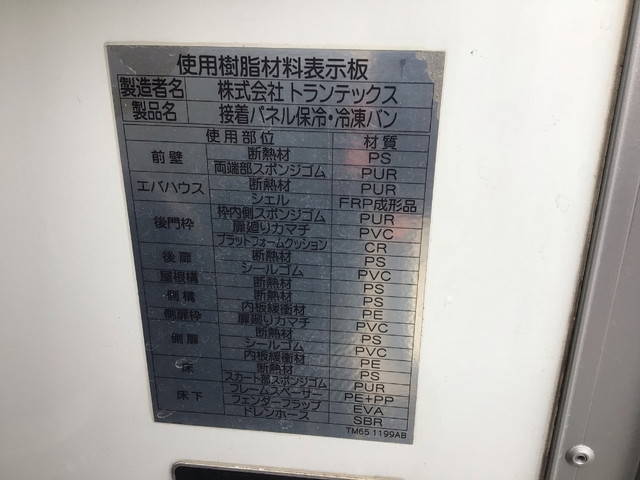 使用樹脂材料表示板
製造者名 株式会社トランテックス
製品名 接着パネル保冷・冷凍バン
使用部位 材質
前壁 断熱材 PS
両端部スポンジゴム PUR
エバハウス 断熱材 PUR
シェル FRP成形品
後門枠 枠内側スポンジゴム PUR
扉廻りカマチ PVC
プラットフォームクッション CR
後扉 断熱材 PS
シールゴム PVC
屋根構 断熱材 PS
側構 断熱材 PS
内板緩衝材 PE
側扉枠 扉廻りカマチ PVC
側扉 断熱材 PS
シールゴム PVC
内板緩衝材 PE
床 断熱材 PS
床下 スカート部スポンジゴム PUR
フレームスペーサー PE+PP
フェンダーフラップ EVA
ドレンホース SBR
TM65 1199AB